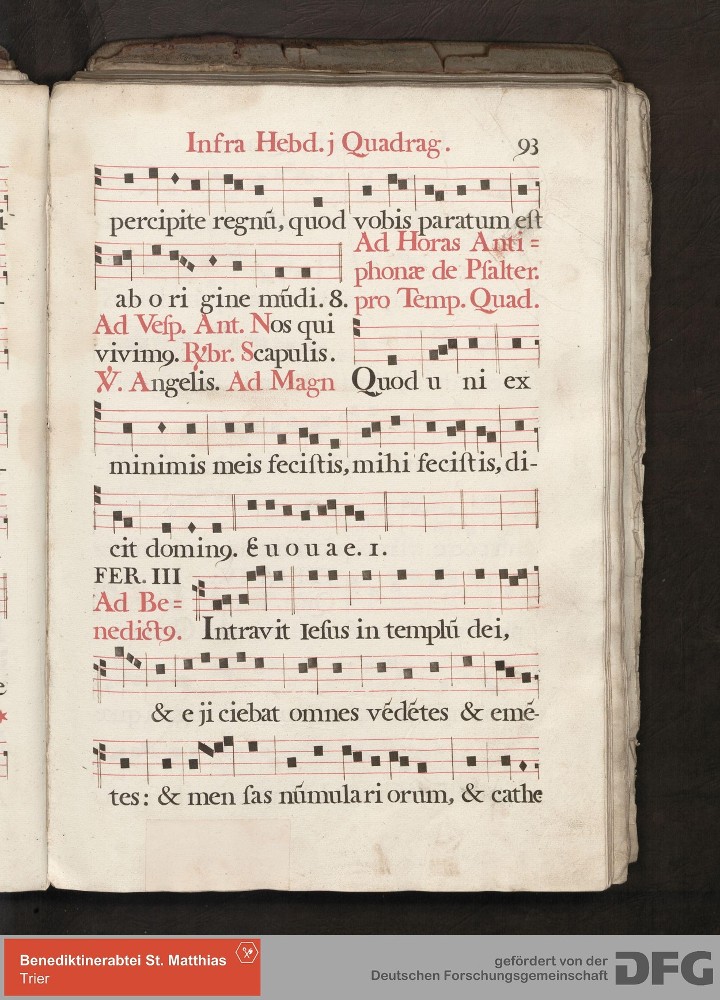 Infra Hebd. j Quadrag. 93
percipite regnū, quod vobis paratum est
ab o ri gine mūdi. 8.
Ad Horas Anti=
phonæ de Pſalter.
pro Temp. Quad.
Ad Veſp. Ant. Nos qui
vivimꝰ. ℟br. Scapulis.
℣. Angelis. Ad Magn
Quod u ni ex
minimis meis feciſtis, mihi feciſtis, di-
cit dominꝰ. E u o u a e. 1.
FER. III
Ad Be=
nedictꝰ.
Intravit Ieſus in templū dei,
& e ji ciebat omnes vēdētes & emē-
tes: & men ſas nūmulari orum, & cathe
Benediktinerabtei St. Matthias
Trier
gefördert von der
Deutschen Forschungsgemeinschaft DFG